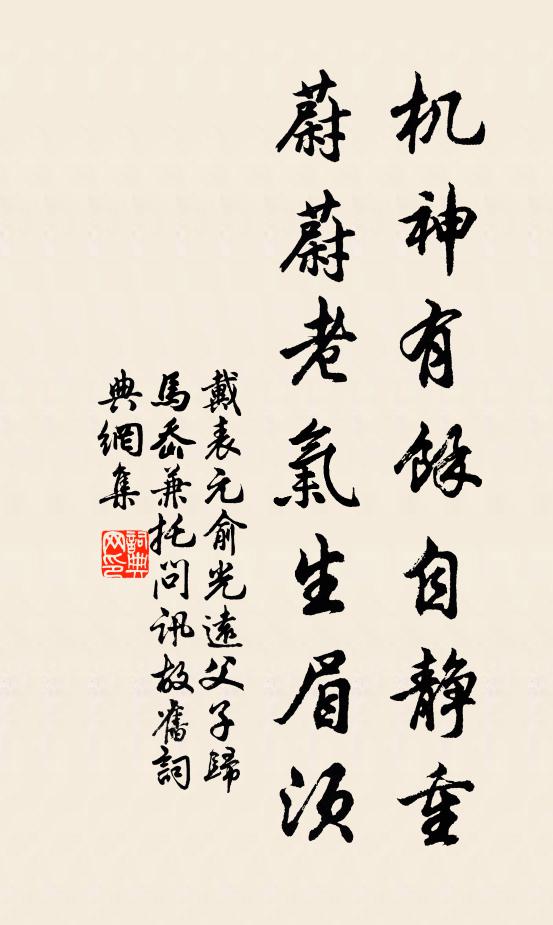 机神有餘自静重
蔚蔚老氣生眉须
戴表元俞光遠父子歸
馬岙兼托問訊故舊詞
典網集
詞典
网印